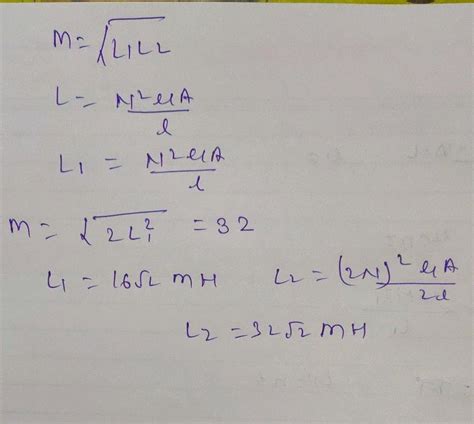 M = √L1L2
L = N²μA/l
L1 = N²μA/l
M = √2L1² = 32
L1 = 16√2 mH L2 = (2N)² μA/2l
L2 = 32√2 mH